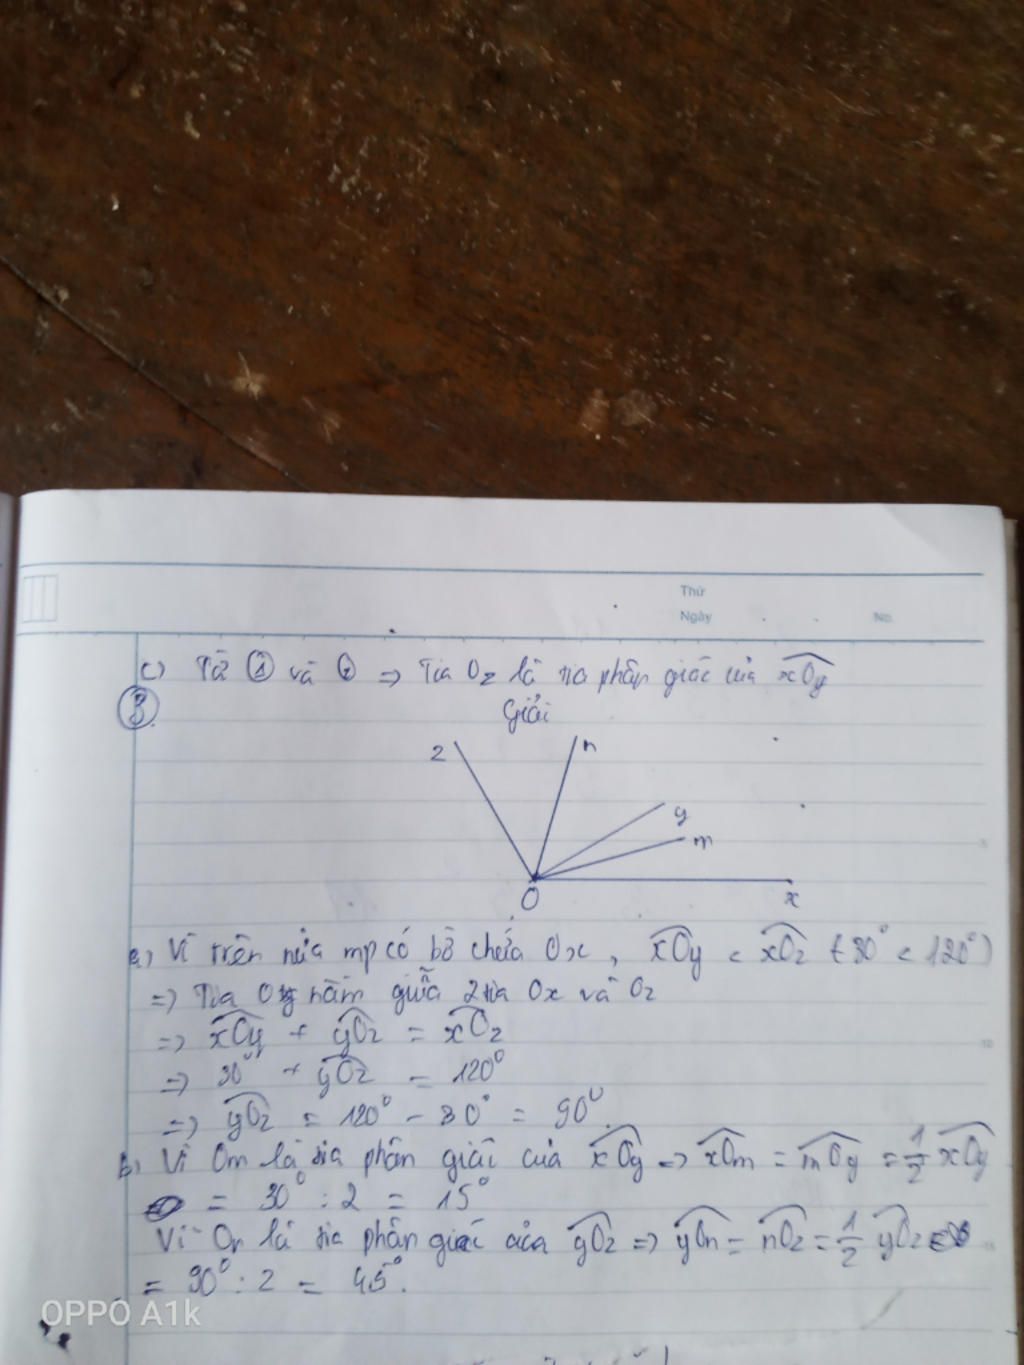 Thứ
Ngày No.
c) Từ ① và ② => Tia Oz là tia phân giác của xOy
3.
Giải
z n
y
m
O x
a) Vì trên nửa mp có bờ chứa Ox, xOy < xOz (30° < 120°)
=> Tia Oy nằm giữa 2 tia Ox và Oz
=> xOy + yOz = xOz
=> 30° + yOz = 120°
=> yOz = 120° - 30° = 90°.
b) Vì Om là tia phân giác của xOy => xOm = mOy = 1/2 xOy
= 30° : 2 = 15°
Vì On là tia phân giác của yOz => yOn = nOz = 1/2 yOz
= 90° : 2 = 45°.
OPPO A1k